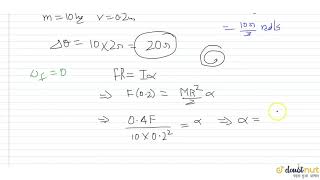 m = 10 kg   r = 0.2 m
= 10π/3 rad/s
Δθ = 10 × 2π = 20π
ω_f = 0
FR = Iα
⇒ F(0.2) = MR²/2 α
⇒ 0.4F / 10 × 0.2² = α ⇒ α =
doubtnut